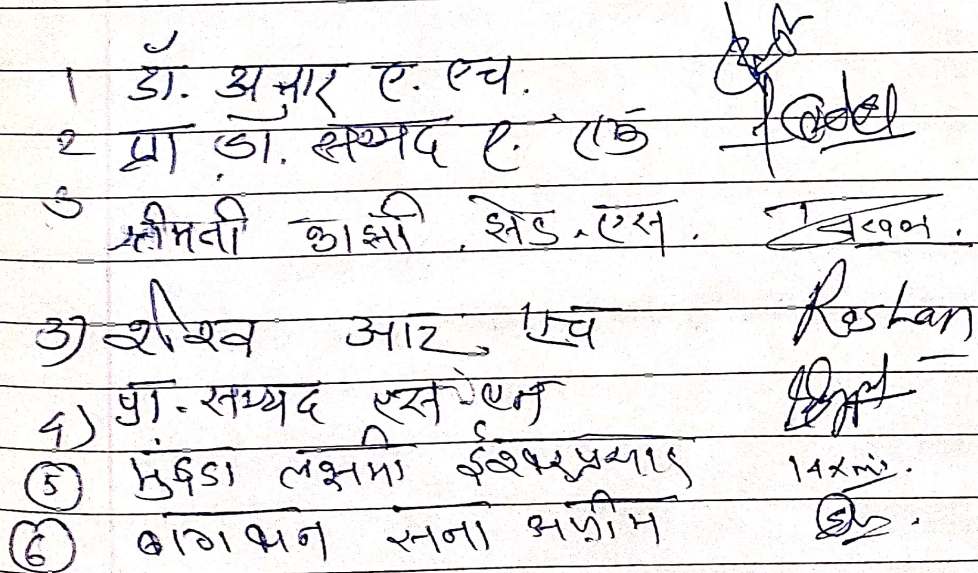 1 डॉ. अत्तार ए. एच.
2 प्रा डॉ. सय्यद ए.
3 श्रीमती काझी झेड.एस.
3) शेख आर. एच Roshan
4) प्रा. सय्यद एस एन
5 मुंदडा लक्ष्मी ईश्वरप्रसाद Laxmi.
6 बागबान सना